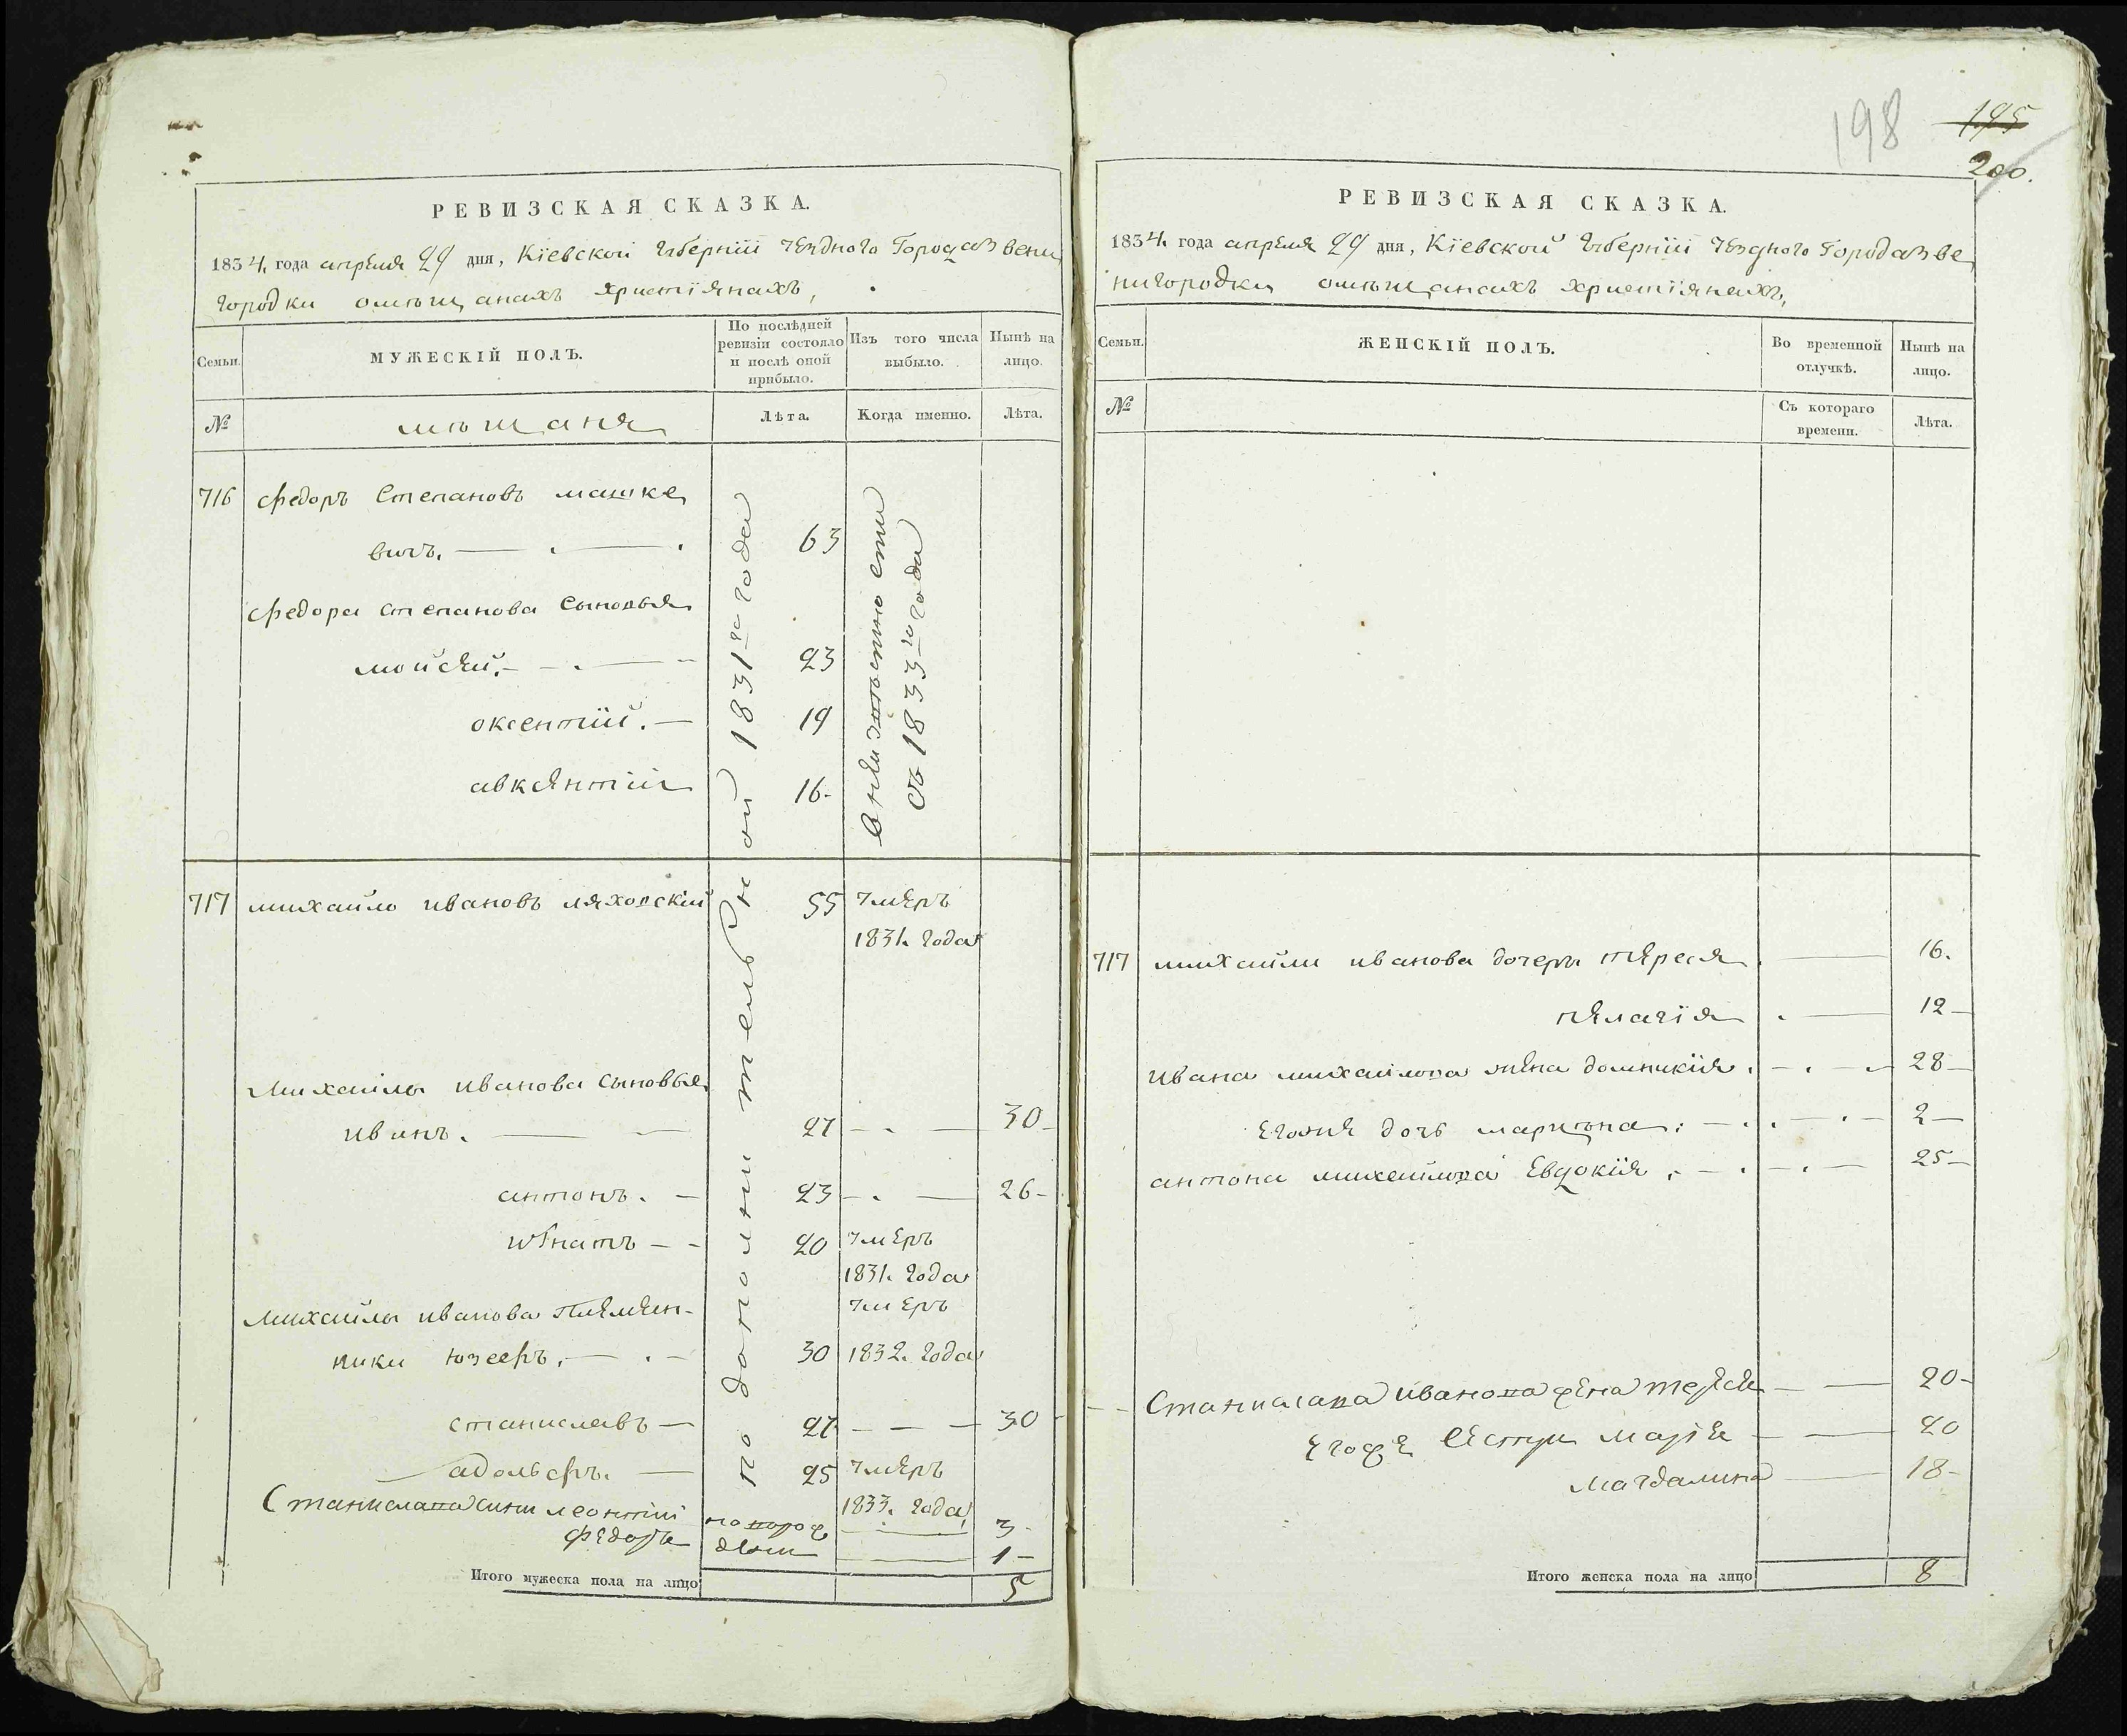 РЕВИЗСКАЯ СКАЗКА.
1834. года апреля 29 дня, Кіевской Губерніи уезднаго Города Звени
городки о мѣщанахъ христіянахъ,
Семьи.
МУЖЕСКІЙ ПОЛЪ.
По послѣдней ревизіи состояло и послѣ оной прибыло.
Изъ того числа выбыло.
Нынѣ на лицо.
№
мѣщаня
Лѣта.
Когда именно.
Лѣта.
716 Федоръ Степановъ машке
вичъ. 63
Федора степанова сыновья
мойсей. 23
оксентій. 19
авксентій 16
по дополнительной 1831го года
въ 1833го года
717 михайло ивановъ ляховскій 55 умеръ
1831. года
Михайлы иванова сыновья
иванъ. 27 30
антонъ. 23 26
игнатъ 20 умеръ
1831. года
Михайлы иванова племен-
умеръ
ники юзефъ. 30 1832. года
станиславъ 27 30
адольфъ. 25 умеръ
1833. года
Станислава сини леонтий 3
Федоръ 1
Итого мужеска пола на лицо 5
198
195
200.
РЕВИЗСКАЯ СКАЗКА.
1834. года апреля 29 дня, Кіевской Губерніи уезднаго Города Зве
нигородки о мѣщанахъ христіянахъ,
Семьи.
ЖЕНСКІЙ ПОЛЪ.
Во временной отлучкѣ.
Нынѣ на лицо.
№
Съ котораго времени.
Лѣта.
717 михайли иванова дочери тереся 16.
пелагія 12
ивана михайлова жена домникія. 28
егоже дочь марияна. 2
антона михайлова Евдокія. 25
Станислава иванова жена тереся 20
егоже сестри Марія 20
Магдалина 18
Итого женска пола на лицо 8